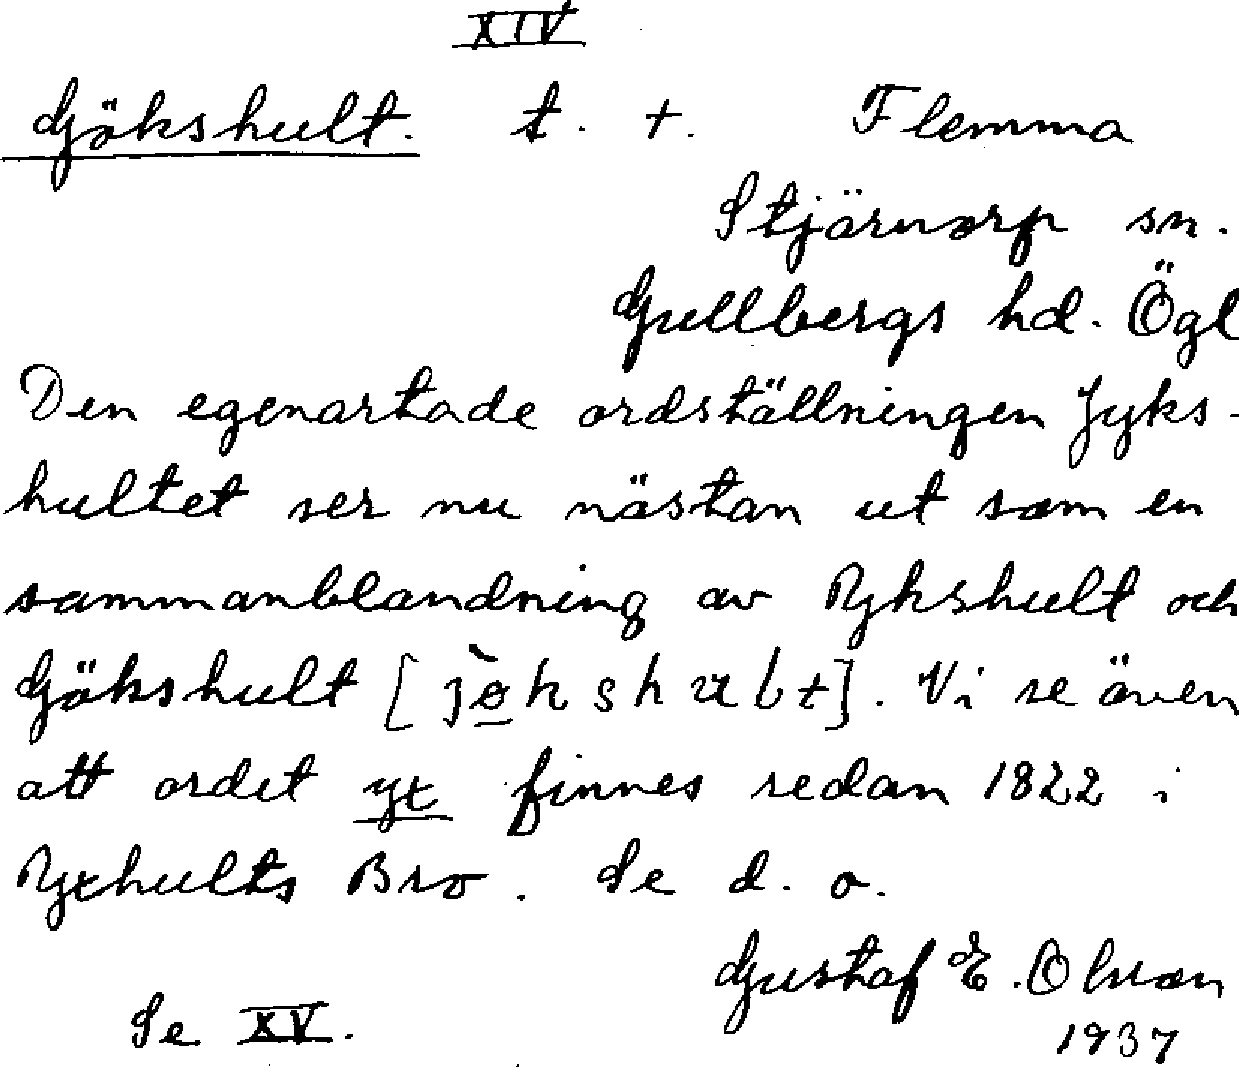 XIV
Gökshult. t. +. Flemma
Stjärnorp sn.
Gullbergs hd. Ögl
Den egenartade ordställningen Jyks-
hultet ser nu nästan ut som en
sammanblandning av Ykshult och
Gökshult [jø̀kshult]. Vi se även
att ordet yx finnes redan 1822 i
Yxhults Bro. Se d. o.
Gustaf E. Olsson
1937
Se XV.